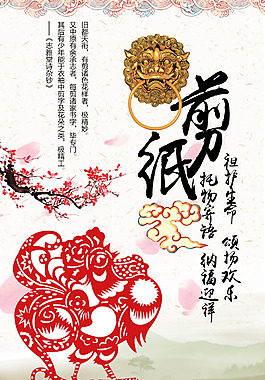 剪纸
祖护生命 颂扬欢乐
托物寄语 纳福迎祥
旧都天街，有剪诸色花样者，极精妙。
又中原有余承志者，每剪诸家书字，毕专门。
其后有少年能于衣袖中剪字及花朵之类，极精工
——《志雅堂诗杂钞》